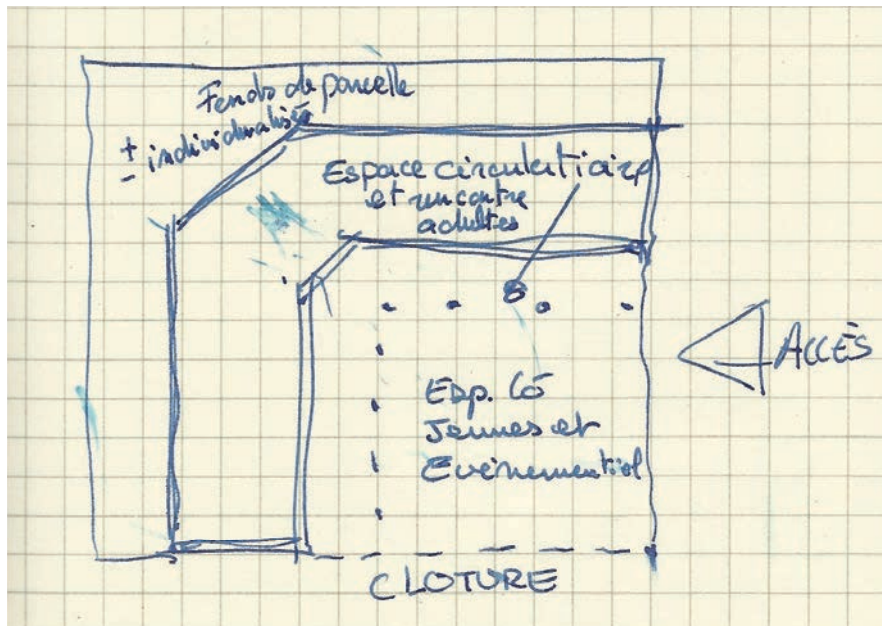 Fonds de parcelle
± individualisés
Espace circulatioire
et rencontre
adultes
ACCÈS
Esp. Có
Jeunes et
Evénementiel
CLOTURE